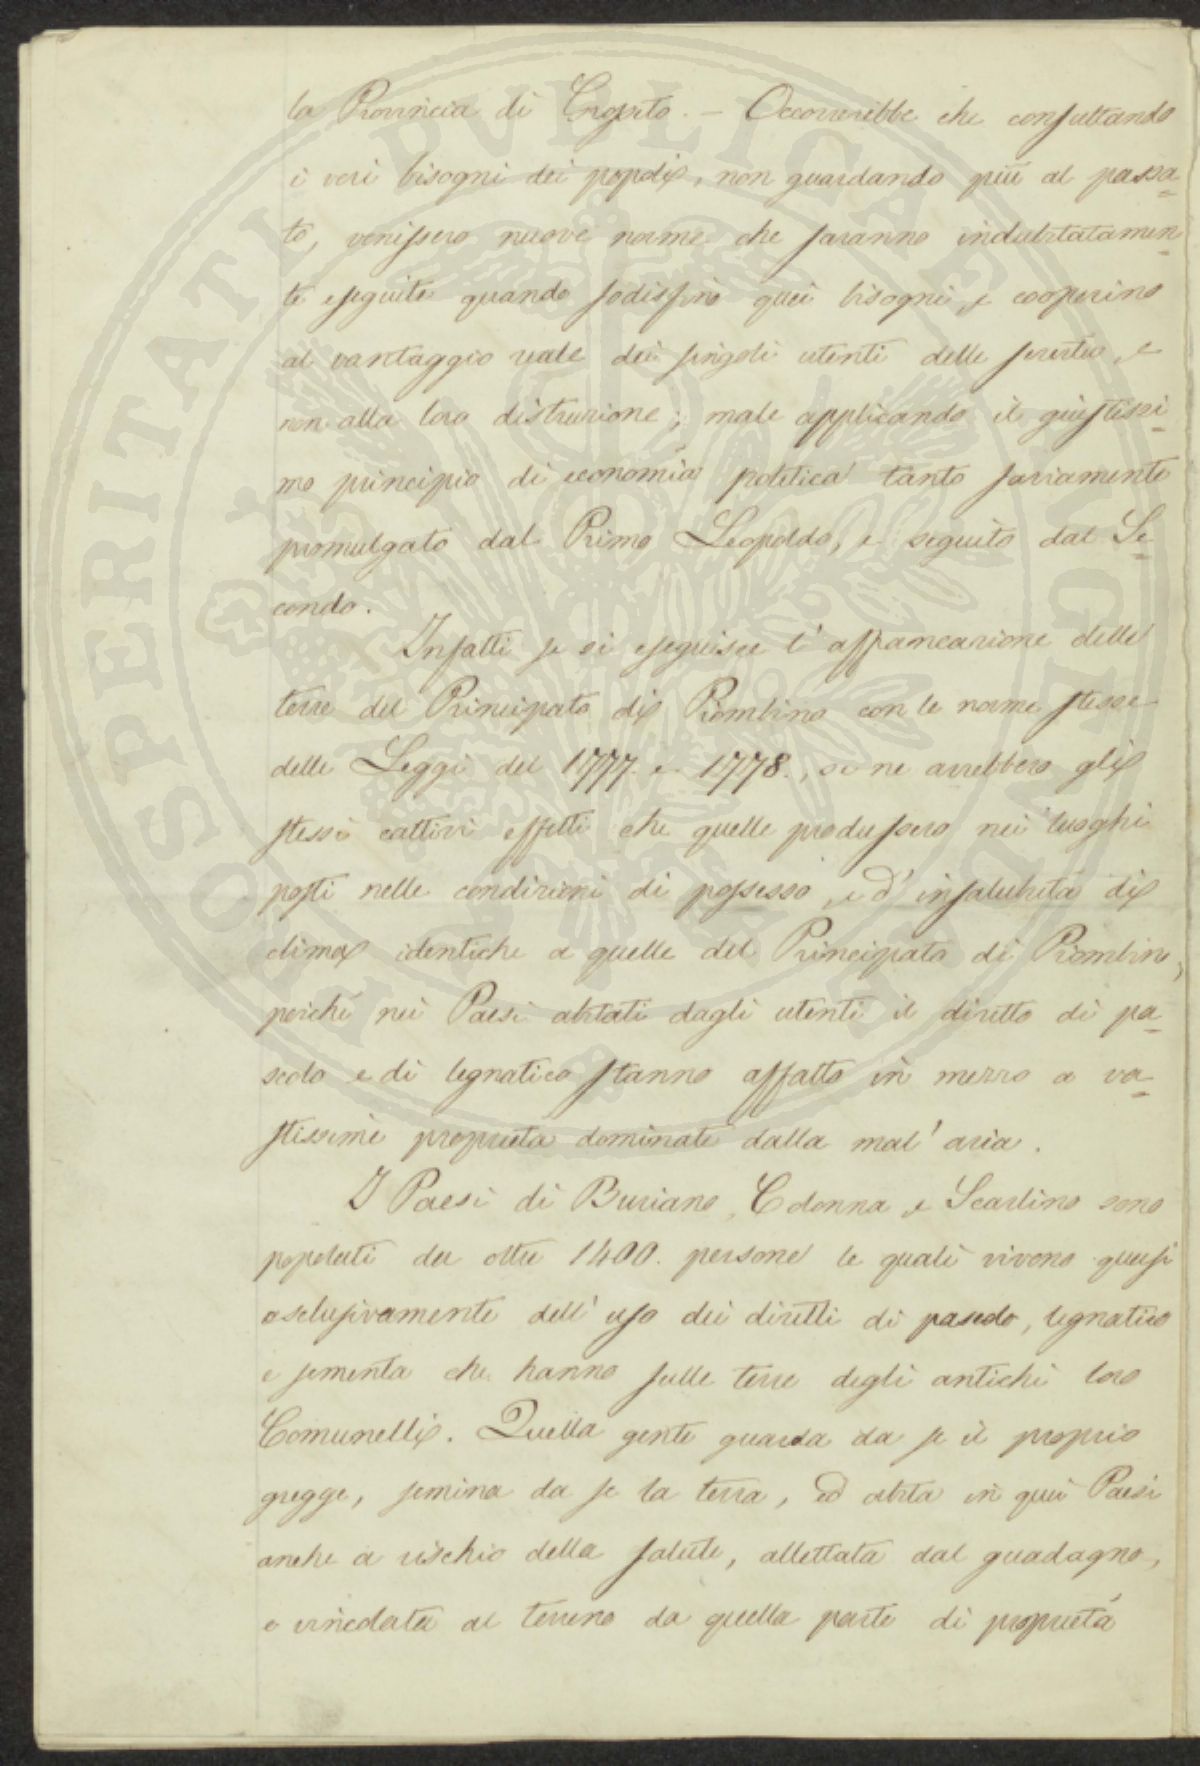 la Provincia di Grosseto. – Occorrerebbe che consultando
i veri bisogni dei popoli, non guardando più al passa=
to, venissero nuove norme che saranno indubitatamen=
te eseguite quando sodisfino quei bisogni, e cooperino
al vantaggio reale dei singoli utenti delle servitù, e
non alla loro distruzione; male applicando il giustissi=
mo principio di economia politica tanto saviamente
promulgato dal Primo Leopoldo, e seguito dal Se=
condo.
Infatti se si eseguisce l'affrancazione delle
terre del Principato di Piombino con le norme stesse
delle Leggi del 1777. e 1778., se ne avrebbero gli
stessi cattivi effetti che quelle produssero nei luoghi
posti nelle condizioni di possesso, e d'insalubrità di
clima identiche a quelle del Principato di Piombino,
perché nei Paesi abitati dagli utenti il diritto di pa=
scolo e di legnatico stanno affatto in mezzo a va=
stissime proprietà dominate dalla mal'aria.
I Paesi di Buriano, Colonna, e Scarlino sono
popolati da oltre 1400. persone le quali vivono quasi
esclusivamente dell'uso dei diritti di pascolo, legnatico
e sementa che hanno sulle terre degli antichi loro
Comunelli. Quella gente guarda da se il proprio
gregge, semina da se la terra, ed abita in quei Paesi
anche a rischio della salute, allettata dal guadagno,
e vincolata al terreno da quella parte di proprietà
PROSPERITATI PVBLICAE AVGENDAE